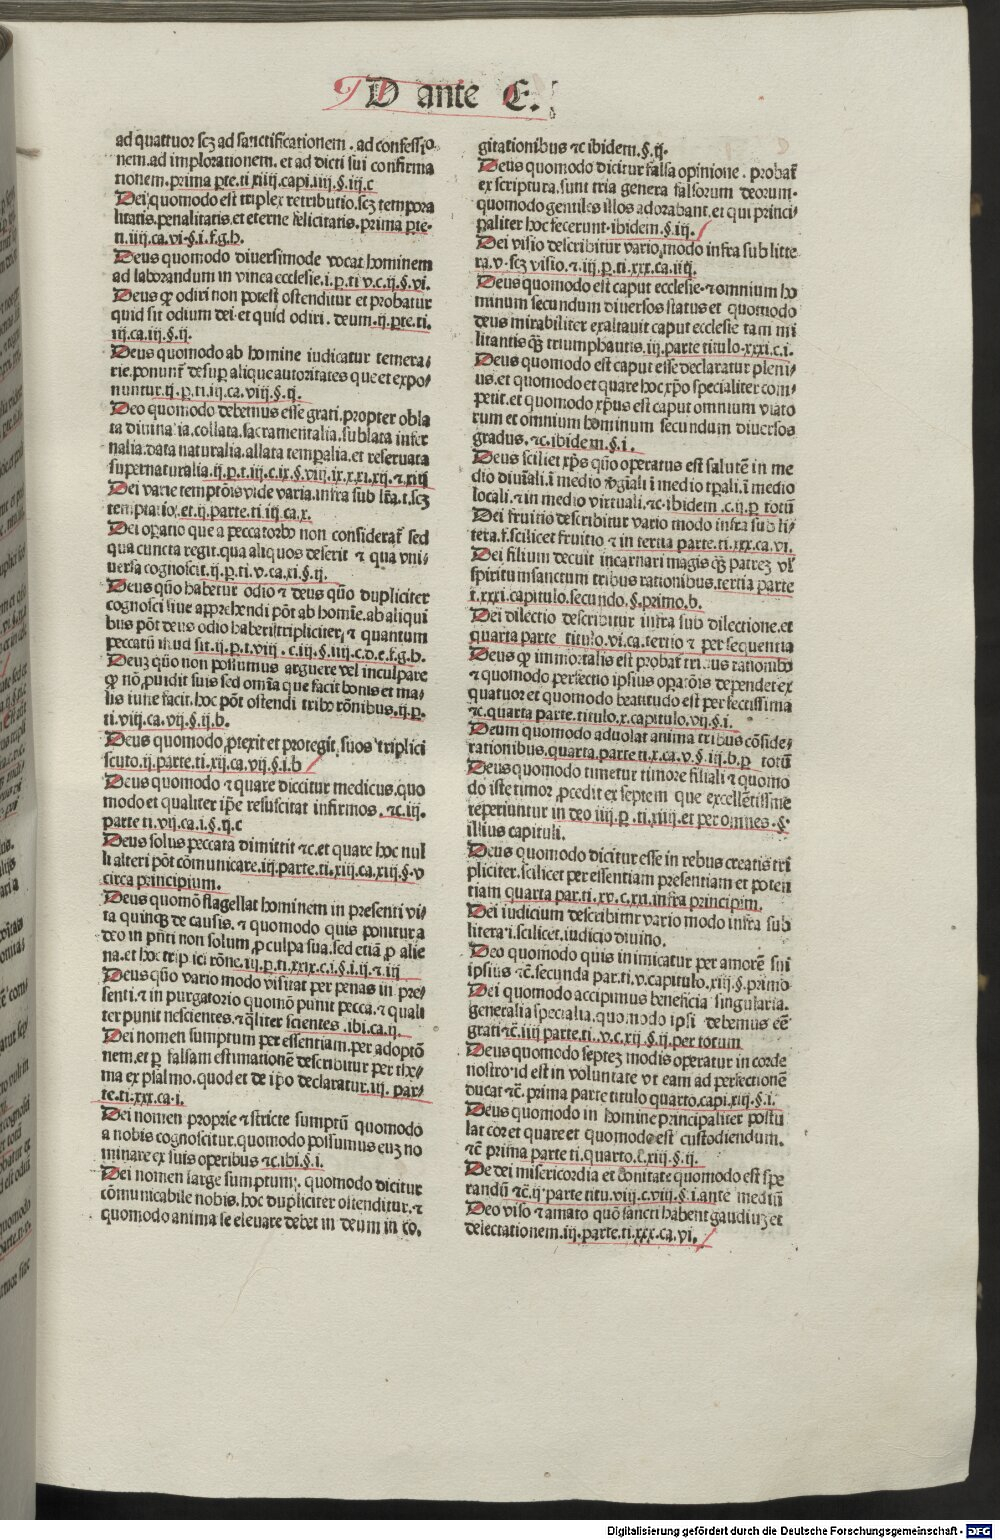 D ante E.
ad quattuor scꝫ ad sanctificationem . ad confessio
nem. ad implorationem. et ad dicti sui confirma
tionem. prima ꝑte. ti xiiij. capi. iiij. §. iij. c
Dei quomodo est triplex retributio. scꝫ tempora
litatis. penalitatis. et eterne felicitatis. prima ꝑte.
ti. iiij. ca. vi. §. i. f. g. h.
Deus quomodo diuersimode vocat hominem
ad laborandum in vinea ecclesie. i. p. ti v. c. ij. §. vi.
Deus ꝙ odiri non potest ostenditur et probatur
quid sit odium dei. et quid odiri . deum. ij. ꝑte. ti.
iij. ca. iij. §. ij.
Deus quomodo ab homine iudicatur temera⸗
rie. ponunt᷑ desuꝑ alique autoritates que et expo⸗
nuntur. ij. p. ti. iij. ca. viij. §. ij.
Deo quomodo debemus esse grati. propter obla
ta diuinalia. collata. sacramentalia. sublata infer
nalia. data naturalia. allata temꝑalia. et reseruata
supernaturalia. ij. p. t. iij. c. ix. §. viij. ix. x. xi. xij. ⁊ xiij
Dei varie temptōis vide varia. infra sub lr̄a. t. scꝫ
temptatio. et. ij. parte. ti. iij. ca. x.
Dei oꝑatio que a peccatorbꝰ non considerat᷑ sed
qua cuncta regit. qua aliquos deserit ⁊ qua vni⸗
uersa cognoscit. ij. p. ti. v. ca. xi. §. ij.
Deus quo͞ habetur odio ⁊ deus quo͞ dupliciter
cognosci siue apprehendi pōt ab homīe. ab aliqui
bus pōt deus odio haberi tripliciter. ⁊ quantum
peccatū illud sit. ij. p. t. viij . c. iij. §. iiij. c. d. e. f. g. h.
Deuꝫ quo͞ non possumus arguere vel inculpare
ꝙ nō ꝓuidit suis sed omīa que facit bonis et ma⸗
lis iuste facit. hoc pōt ostendi tribꝰ rōnibus. ij. p.
ti. viij. ca. vij. §. ij. b.
Deus quomodo ꝓtexit et protegit suos triplici
scuto. ij. parte. ti. xij. ca. vij. §. i. b
Deus quomodo ⁊ quare diccitur medicus. quo
modo et qualiter ip̄e resuscitat infirmos. ⁊c. iij.
parte ti. vij. ca. i. §. ij. c
Deus solus peccata dimittit ⁊c. et quare hoc nul
li alteri pōt cōmunicare. iij. parte. ti. xiij. ca. xiij. §. v
circa principium.
Deus quomō flagellat hominem in presenti vi⸗
ta quinqꝫ de causis. ⁊ quomodo quis ponitur a
deo in pn̄ti non solum ꝓ culpa sua. sed etiā ꝓ alie
na. et hoc triplici rōne. iij. p. ti. xxix. c. i. §. i. ij. ⁊ iij
Deus quo͞ vario modo visitat per penas in pre⸗
senti. ⁊ in purgatorio quomō punit pecca. ⁊ quali
ter punit nescientes. ⁊ q̄liter scientes . ibi. ca. ij.
Dei nomen sumptum per essentiam. per adoptō
nem. et ꝑ falsam estimationē describitur per the⸗
ma ex psalmo. quod et de ip̄o declaratur. iij. par⸗
te. ti. xxx. ca. i.
Dei nomen proprie ⁊ stricte sumptū quomodo
a nobis cognoscitur. quomodo possumus euꝫ no
minare ex suis operibus ⁊c. ibi. §. i.
Dei nomen large sumptum. quomodo dicitur
cōmunicabile nobis. hoc dupliciter ostenditur. ⁊
quomodo anima se eleuare debet in deum in co.
gitationibus ⁊c ibidem. §. ij.
Deus quomodo dicitur falsa opinione . probat᷑
ex scriptura. sunt tria genera falsorum deorum.
quomodo gentiles illos adorabant. et qui princi⸗
paliter hoc fecerunt. ibidem. §. iij.
Dei visio describitur vario modo infra sub litte
ra. v. scꝫ visio. ⁊. iij. p. ti. xxx. ca. iiij.
Deus quomodo est caput ecclesie. ⁊ omnium ho
minum secundum diuersos status et quomodo
deus mirabiliter exaltauit caput ecclesie tam mi
litantis qꝫ triumphantis. iij. parte titulo. xxxi. c. i.
Deus quomodo est caput esse declaratur pleni⸗
us. et quomodo et quare hoc xp̄o specialiter com⸗
petit. et quomodo xp̄us est caput omnium viato
rum et omnium hominum secundum diuersos
gradus. ⁊c. ibidem. §. i.
Deus sciliet xp̄s quo͞ operatus est salutē in me
dio diuīali. ī medio ꝟgīali ī medio tꝑali. ī medio
locali. ⁊ in medio virtuali. ⁊c. ibidem . c. ij. p totū
Dei fruitio describitur vario modo infra sub li⸗
tera. f. scilicet fruitio ⁊ in tertia parte. ti. xxx. ca. vi.
Dei filium decuit incarnari magis qꝫ patreꝫ vl᷑
spiritumsanctum tribus rationibus. tertia parte
t. xxxi. capitulo. secundo. §. primo. b.
Dei dilectio describitur infra sub dilectione. et
quarta parte titulo. vi. ca. tertio ⁊ per sequentia
Deus ꝙ immortalis est probat᷑ tribus rationibꝰ
⁊ quomodo perfectio ipsius oꝑatōis dependet ex
quatuor et quomodo beatitudo est perfectissima
⁊c. quarta parte. titulo. x. capitulo. vij. §. i.
Deum quomodo aduolat anima tribus cōside⸗
rationibus. quarta. parte ti. x. ca. v. §. iij. b. ꝑ totū
Deus quomodo timetur timore filiali ⁊ quomo
do iste timor ꝓcedit ex septem que excellētissime
reperiuntur in deo iiij. p . ti. xiiij. et per omnes . §.
illius capituli.
Deus quomodo dicitur esse in rebus creatis tri
pliciter. scilicet per essentiam presentiam et poten
tiam quarta par. ti. xv. c. xxi. infra principim.
Dei iudicium describitur vario modo infra sub
litera i. scilicet. iudicio diuino.
Deo quomodo quis inimicatur per amorē sui
ipsius ⁊c̄. secunda par. ti. v. capitulo. xiij. §. primo
Dei quomodo accipimus beneficia singularia.
generalia specialia. quomodo ipsi debemus eē
grati ⁊c̄. iiij parte. ti.. v. c. xij. §. ij. per totum
Deus quomodo septeꝫ modis operatur in corde
nostro id est in voluntate vt eam ad perfectionē
ducat ⁊c̄. prima parte titulo quarto. capi. xiij. §. i.
Deus quomodo in homine principaliter postu
lat cor et quare et quomodo est custodiendum.
⁊c̄ prima parte ti. quarto. c. xiij. §. ij.
De dei misericordia et bonitate quomodo est spe
randū ⁊c̄. ij parte titu. viij. c. viij. §. i. ante mediū
Deo viso ⁊ amato quo͞ sancti habent gaudiuꝫ et
delectationem. iij. parte. ti. xxx. ca. vi.
Digitalisierung gefördert durch die Deutsche Forschungsgemeinschaft - DFG